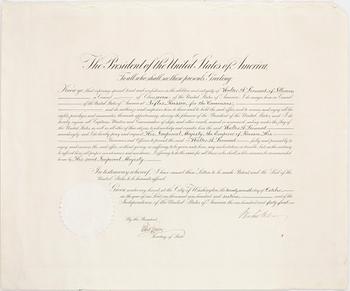 The President of the United States of America,
To all who shall see these presents, Greeting:
Know ye, that reposing special trust and confidence in the abilities and integrity of Walter H.
of the United States of America
of the United States of America at Tiflis, Russia, for the Caucasus;
and do authorize and empower him to have and to hold the said office and to exercise and enjoy all the
rights,
hereby enjoin all Captains, Masters and Commanders of ships and other vessels, armed or unarmed, sailing under the flag of the
United States, as well as all other of their citizens, to acknowledge and consider him the said Walter H.
accordingly. And I do hereby pray and request His Imperial Majesty, the Emperor of Russia, His
Governors and Officers to permit the said Walter H. fully and peaceably to
enjoy and exercise the said office, without giving or suffering to be given unto him, any molestation or trouble, but on the contrary
to afford him all proper countenance and assistance; I offering to do the same for all those who shall in like manner be recommended
to me by His said Imperial Majesty.
In testimony whereof, I have caused these Letters to be made Patent, and the Seal of the
United States to be hereunto affixed.
Given under my hand at the City of Washington, the day of October
in the year of our Lord one thousand nine hundred and sixteen and of the
Independence of the United States of America, the one hundred and forty-first.
By the President,
Secretary of State